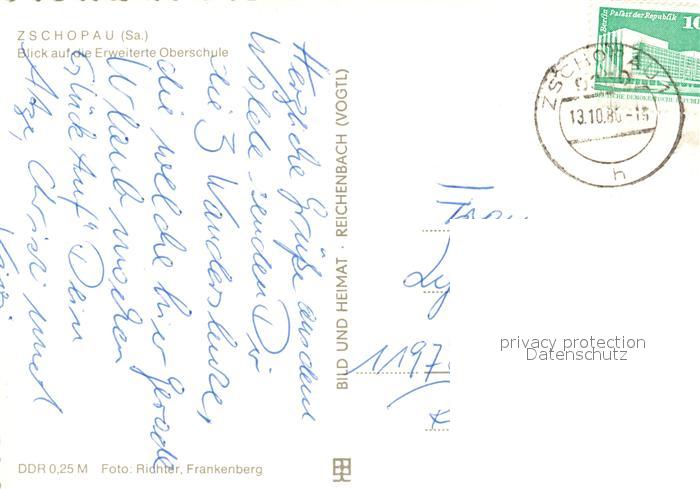 ZSCHOPAU (Sa.)
Blick auf die Erweiterte Oberschule
Herzliche Grüße aus dem
Walde senden Dir
die 3 Wandersleute,
die welche hier gerade
Urlaub machen
"Glück Auf" Dein
Christ und
DDR 0,25 M Foto: Richter, Frankenberg
BILD UND HEIMAT · REICHENBACH (VOGTL)
Berlin Palast der Republik
10
DEMOKRATISCHE
ZSCHOPAU 1
13.10.86-15
h
1197
privacy protection
Datenschutz